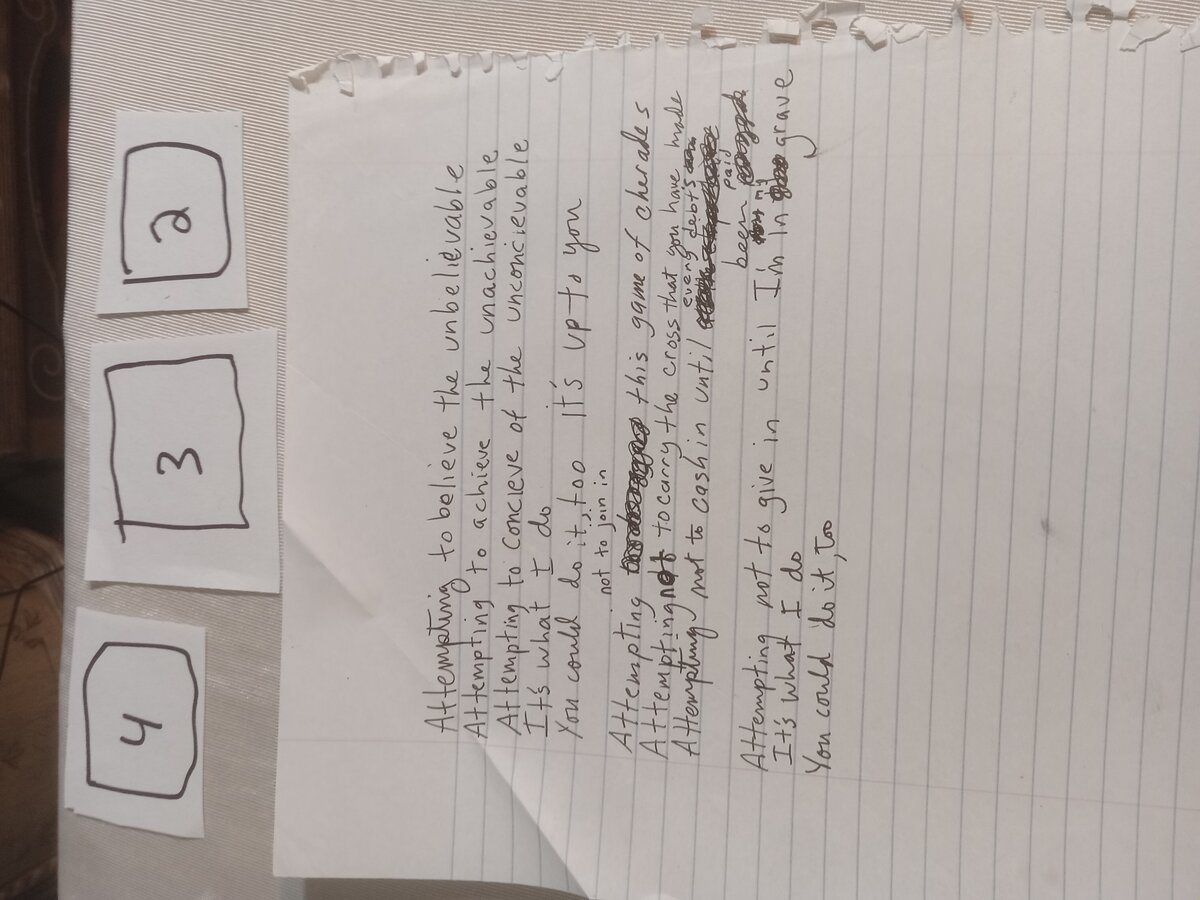 4
3
2
Attempting to believe the unbelievable
Attempting to achieve the unachievable
Attempting to concieve of the unconcievable
It's what I do
You could do it, too It's up to you
not to join in
Attempting this game of cherades
Attempting not to carry the cross that you have made
every debt's
Attempting not to cash in until
been paid
my
Attempting not to give in until I'm in grave
It's what I do
You could do it, too